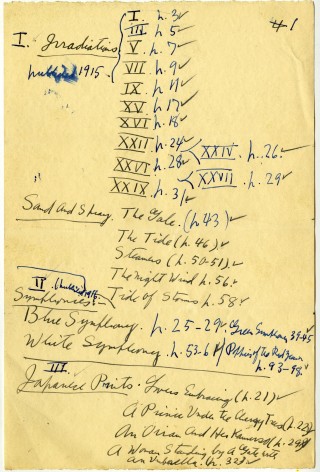 #1
I. Irradiations
published 1915
I. p. 3 ✓
III p. 5 ✓
V p. 7 ✓
VII p. 9 ✓
IX p. 11 ✓
XV p. 17 ✓
XVI p. 18 ✓
XXII p. 24 ✓
XXIV p. 26 ✓
XXVI p. 28 ✓
XXVII p. 29 ✓
XXIX p. 31 ✓
Sand and Spray. The Gale. (p. 43) ✓
The Tide (p. 46) ✓
Steamers (p. 50-51) ✓
The Night Wind p. 56 ✓
II (published 1916
Symphonies. Tide of Storms p. 58 ✓
Blue Symphony. p. 25-29 ✓ Green Symphony 39-45
White Symphony. p. 53-6 ✓ Poppies of the Red
p. 93-98. ✓
III
Japanese Prints. Lovers Embracing (p. 21) ✓
A Picnic Under the Cherry Trees (p. 22) ✓
An Oiran And Her Kamuro (p. 29) ✓
A Woman Standing by A Gate with
An Umbrella. p. 32 ✓